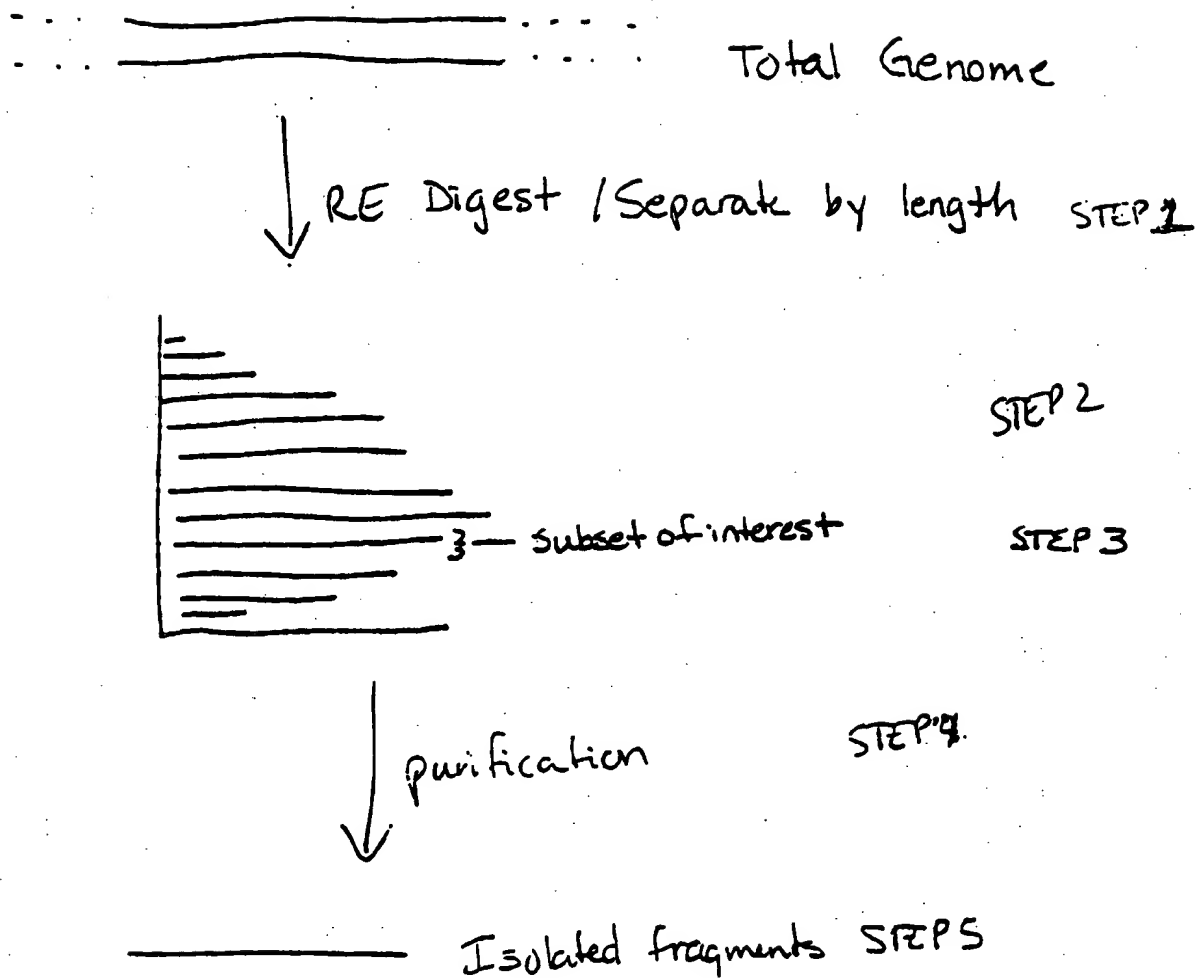 Total Genome
RE Digest / Separate by length STEP 1
STEP 2
subset of interest STEP 3
purification STEP 4
Isolated fragments STEP 5